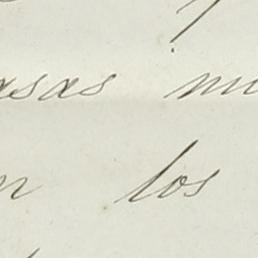 asas mu
n los